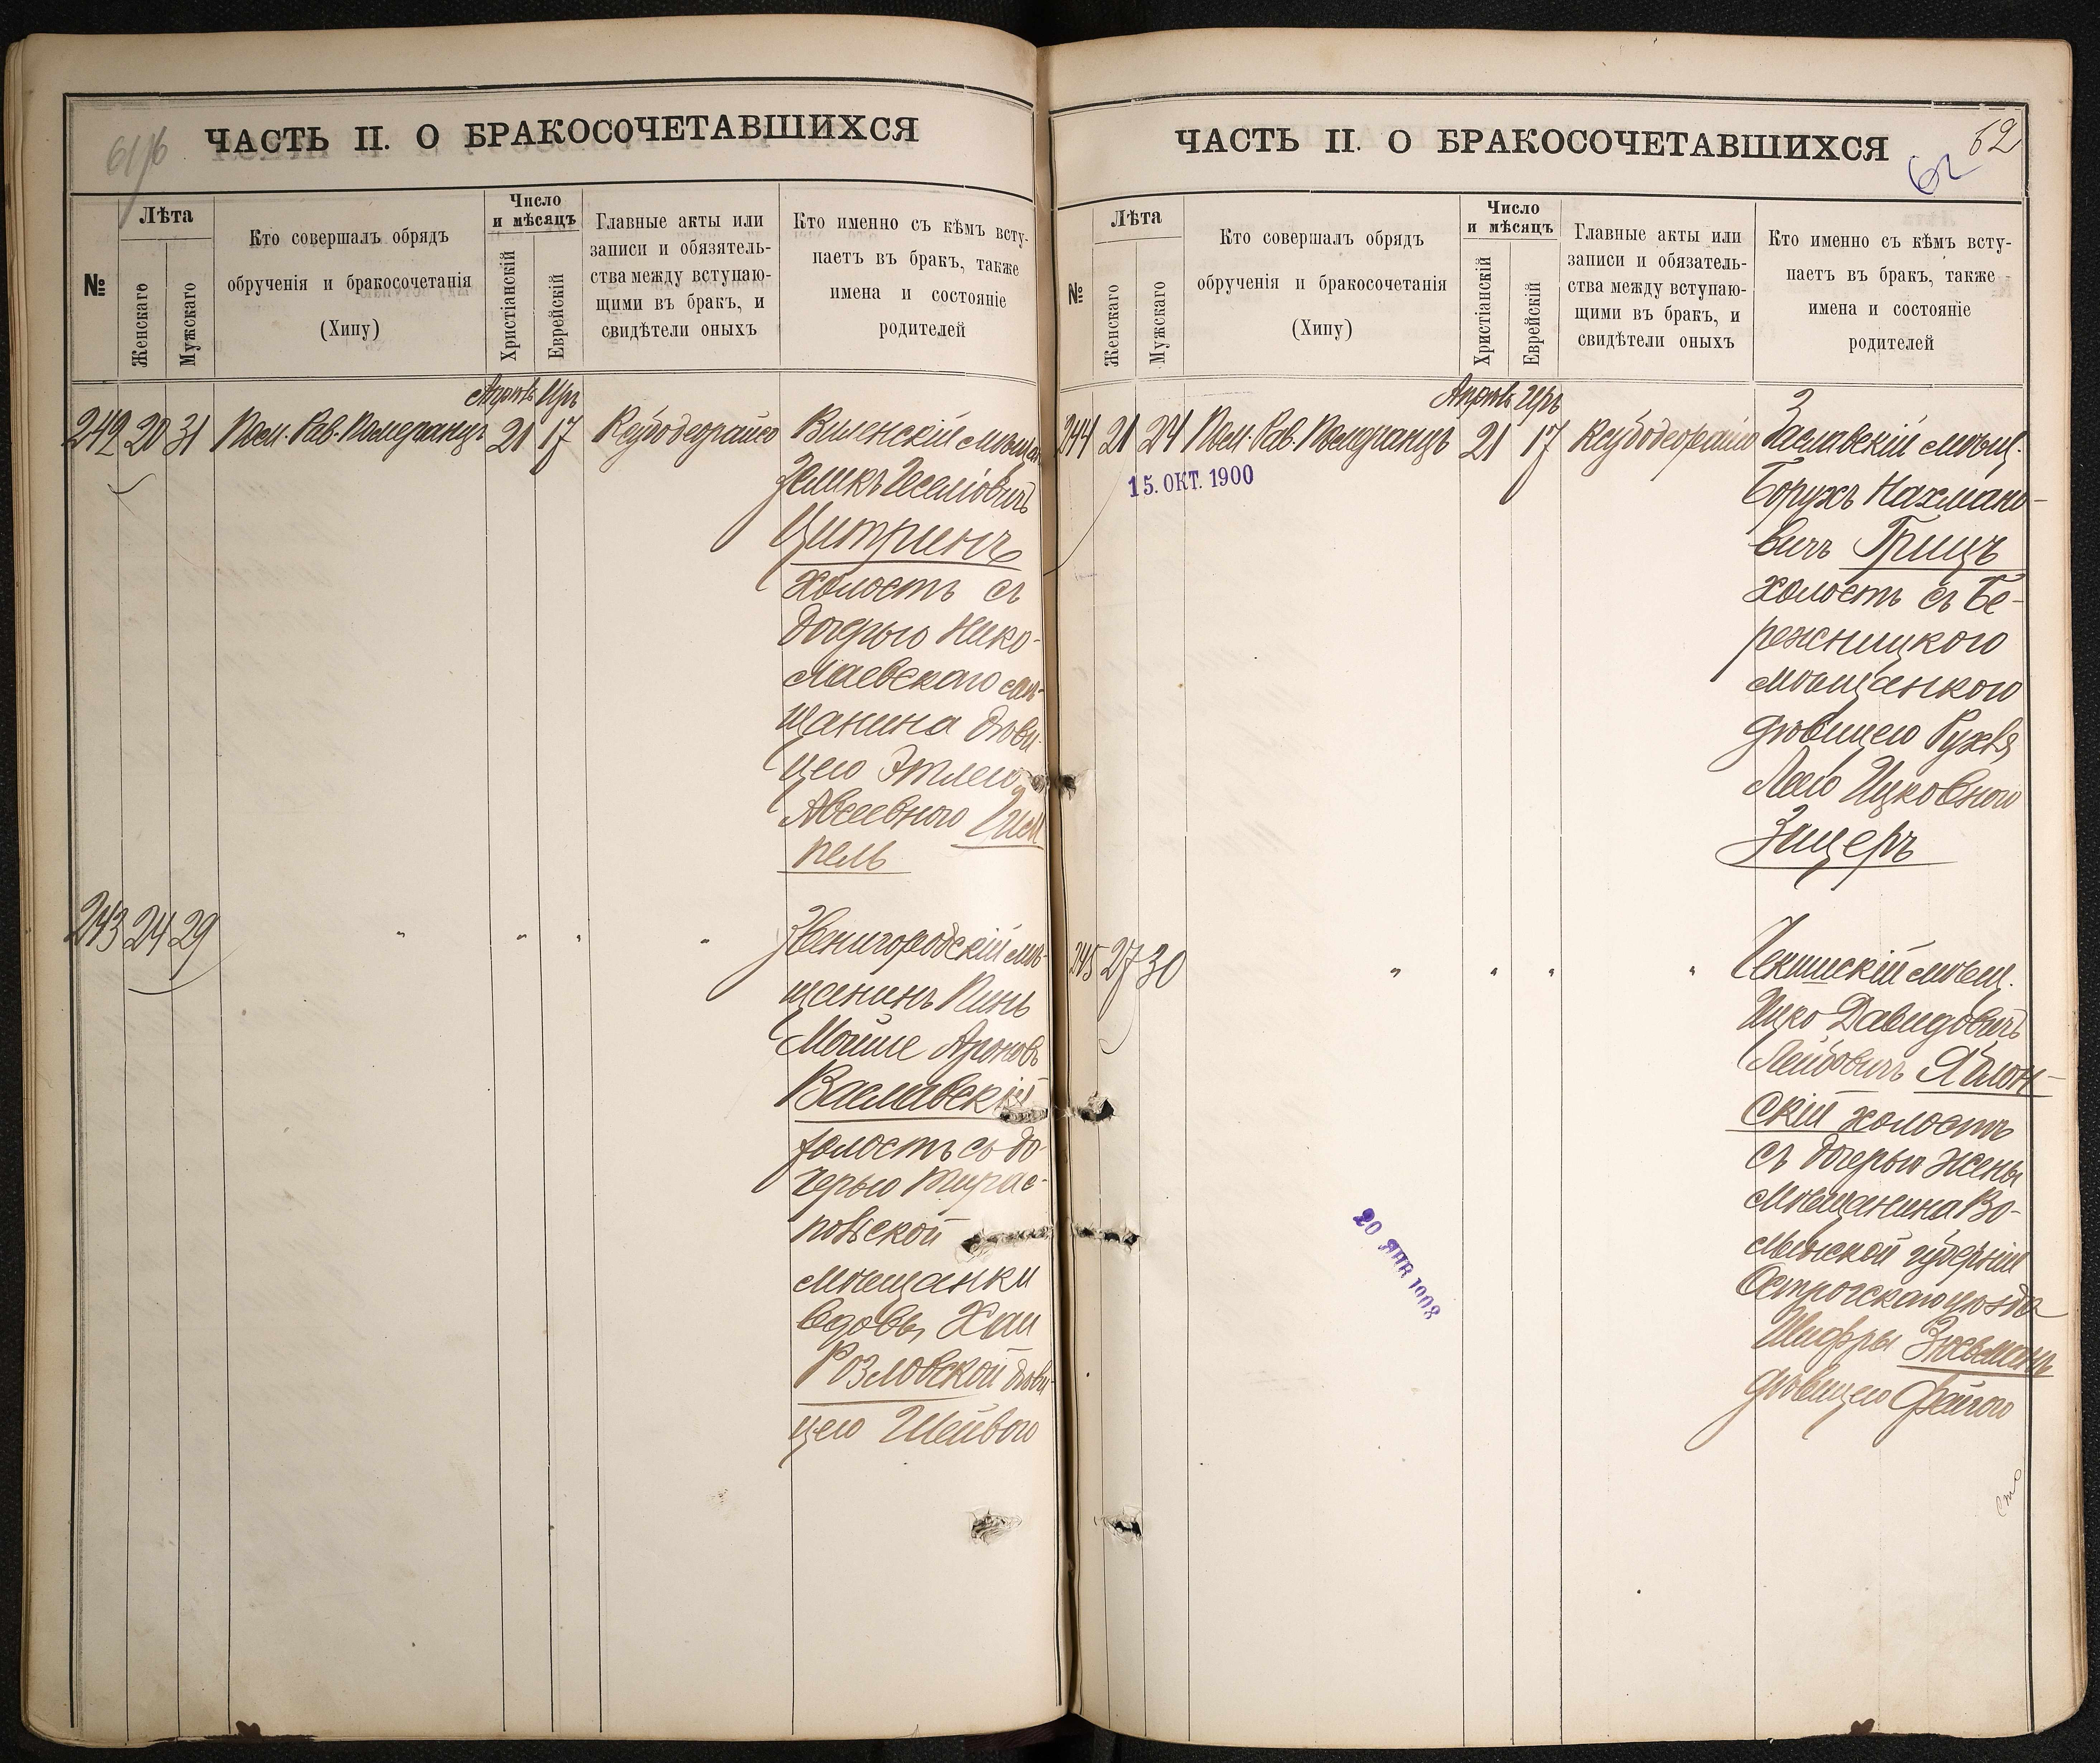 61/б
ЧАСТЬ II. О БРАКОСОЧЕТАВШИХСЯ
№
Лѣта
Женскаго
Мужскаго
Кто совершалъ обрядъ
обрученія и бракосочетанія
(Хипу)
Число
и мѣсяцъ
Христіанскій
Еврейскій
Главные акты или
записи и обязатель-
ства между вступаю-
щими въ бракъ, и
свидѣтели оныхъ
Кто именно съ кѣмъ всту-
паетъ въ бракъ, также
имена и состояніе
родителей
Апрѣль Iяръ
242 20 31 Пом. Рав. Померанцъ 21 17
Виленскій мѣщан
Зеликъ
Цитринъ
холостъ съ
дочерью Нико-
лаевскаго мѣ-
щанина дѣви-
цею Этлею
Авсеевною Гим
пель
243 24 29 " " " "
Звенигородскій мѣ-
щанинъ Пинь
Мойше Ароновъ
Ваславскій
холостъ съ до-
черью Тирас-
польской
мѣщанки
вдовы Хаи
Розловской дѣви-
цею Шейвою
ЧАСТЬ II. О БРАКОСОЧЕТАВШИХСЯ
62
62
№
Лѣта
Женскаго
Мужскаго
Кто совершалъ обрядъ
обрученія и бракосочетанія
(Хипу)
Число
и мѣсяцъ
Христіанскій
Еврейскій
Главные акты или
записи и обязатель-
ства между вступаю-
щими въ бракъ, и
свидѣтели оныхъ
Кто именно съ кѣмъ всту-
паетъ въ бракъ, также
имена и состояніе
родителей
Апрѣль Iяръ
244 21 24 Пом. Рав. Померанцъ 21 17
15. ОКТ. 1900
Заславскій мѣщ.
Борухъ Нахмано-
вичъ Грицъ
холостъ съ Бе-
режницкою
мѣщанкою
дѣвицею Рухля
Леею Ицковною
Зицеръ
245 27 30 " " " "
20 ЯНВ 1908
мѣщ.
Ицко Давидовичъ
Лейбовичъ Яблон-
скій холостъ
съ дочерью жены
мѣщанина Во-
лынской губерніи
Острогскаго уѣзда
Шифры Зюсьманъ
дѣвицею Фейгою